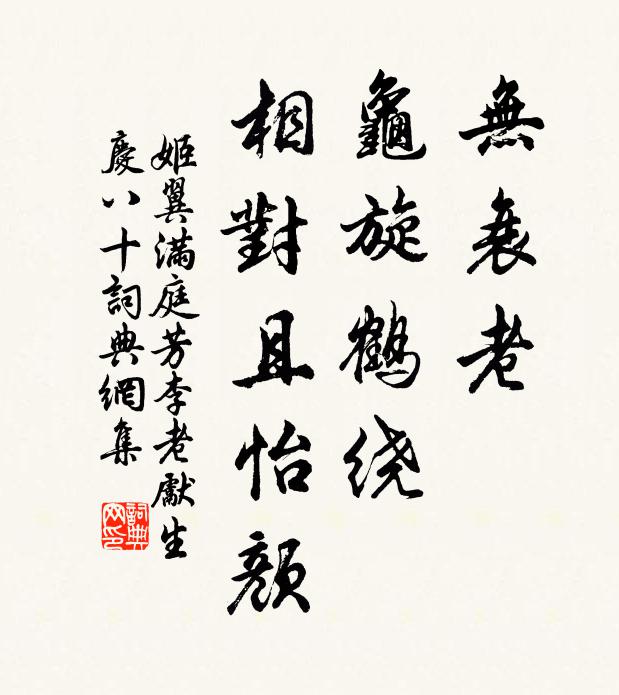 無衰老
龜旋鶴绕
相對且怡顏
姬翼滿庭芳李老獻生
慶八十詞典網集
詞典
网印